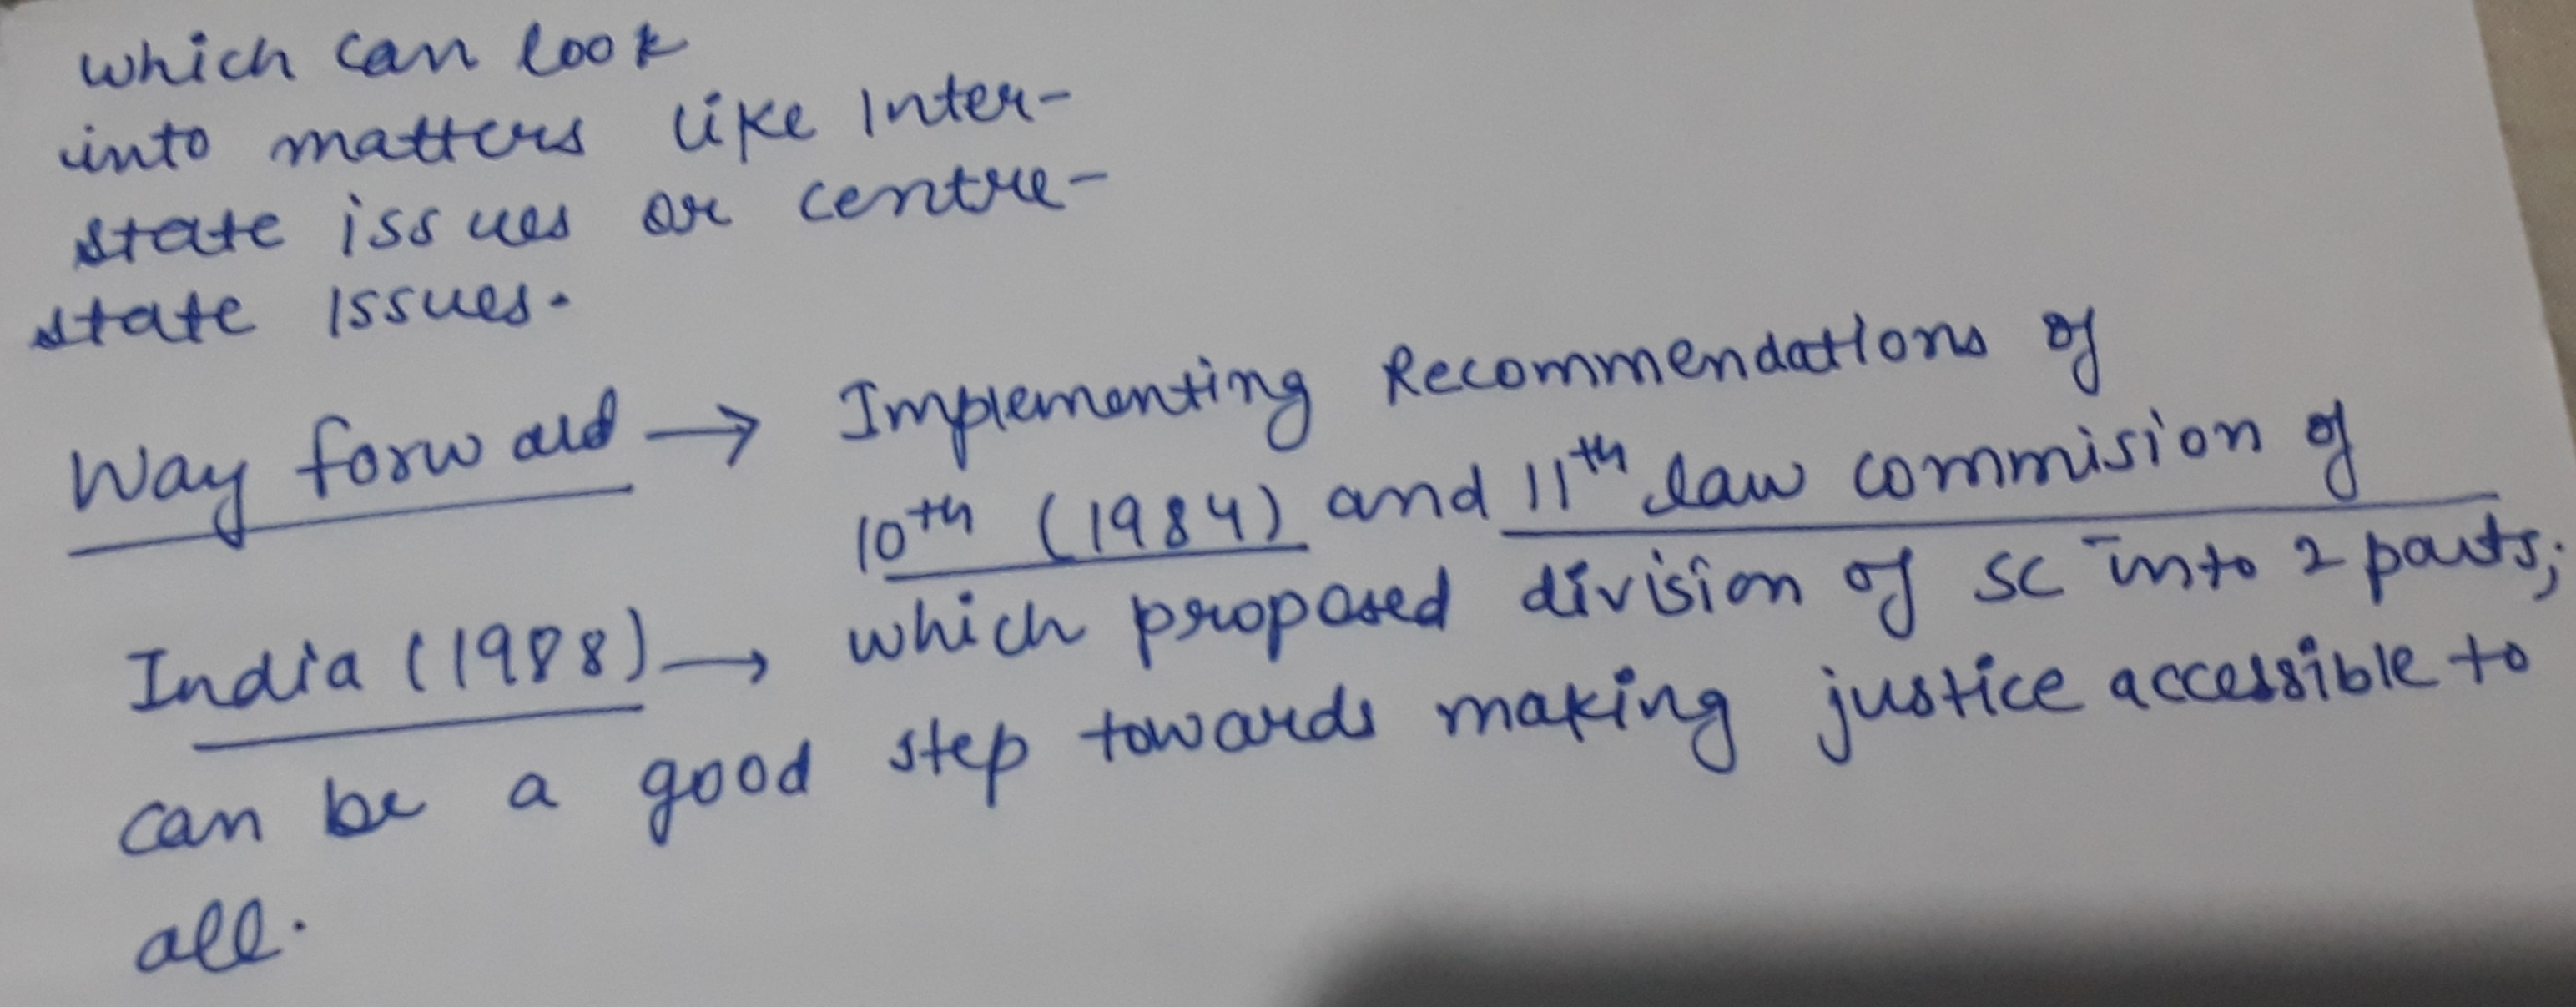 which can look
into matters like Inter-
state issues or centre-
state issues.
Way forward → Implementing Recommendations of
10th (1984) and 11th law commision of
India (1988) → which proposed division of SC into 2 parts;
can be a good step towards making justice accessible to
all.